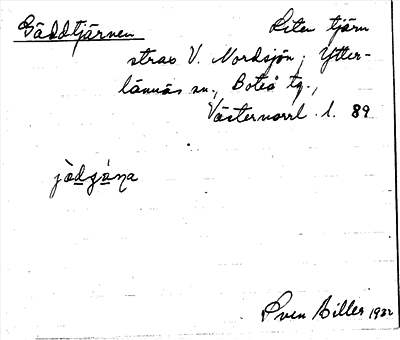 Gäddtjärnen Liten tjärn
strax V. Nordsjön; Ytter-
lännäs sn., Boteå tg.,
Västernorrl. l. 89
Sven Biller 1932